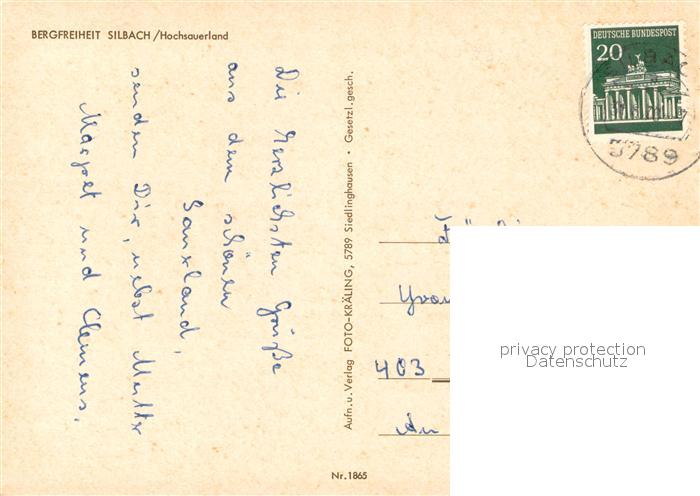 BERGFREIHEIT SILBACH/Hochsauerland
Die Herzlichsten Grüße
aus dem schönen
Sauerland,
senden Dir, nebst Mutter
Margret und Clemens.
Aufn. u. Verlag FOTO-KRÄLING, 5789 Siedlinghausen · Gesetzl. gesch.
DEUTSCHE BUNDESPOST
20
5789
403
An
privacy protection
Datenschutz
Nr. 1865